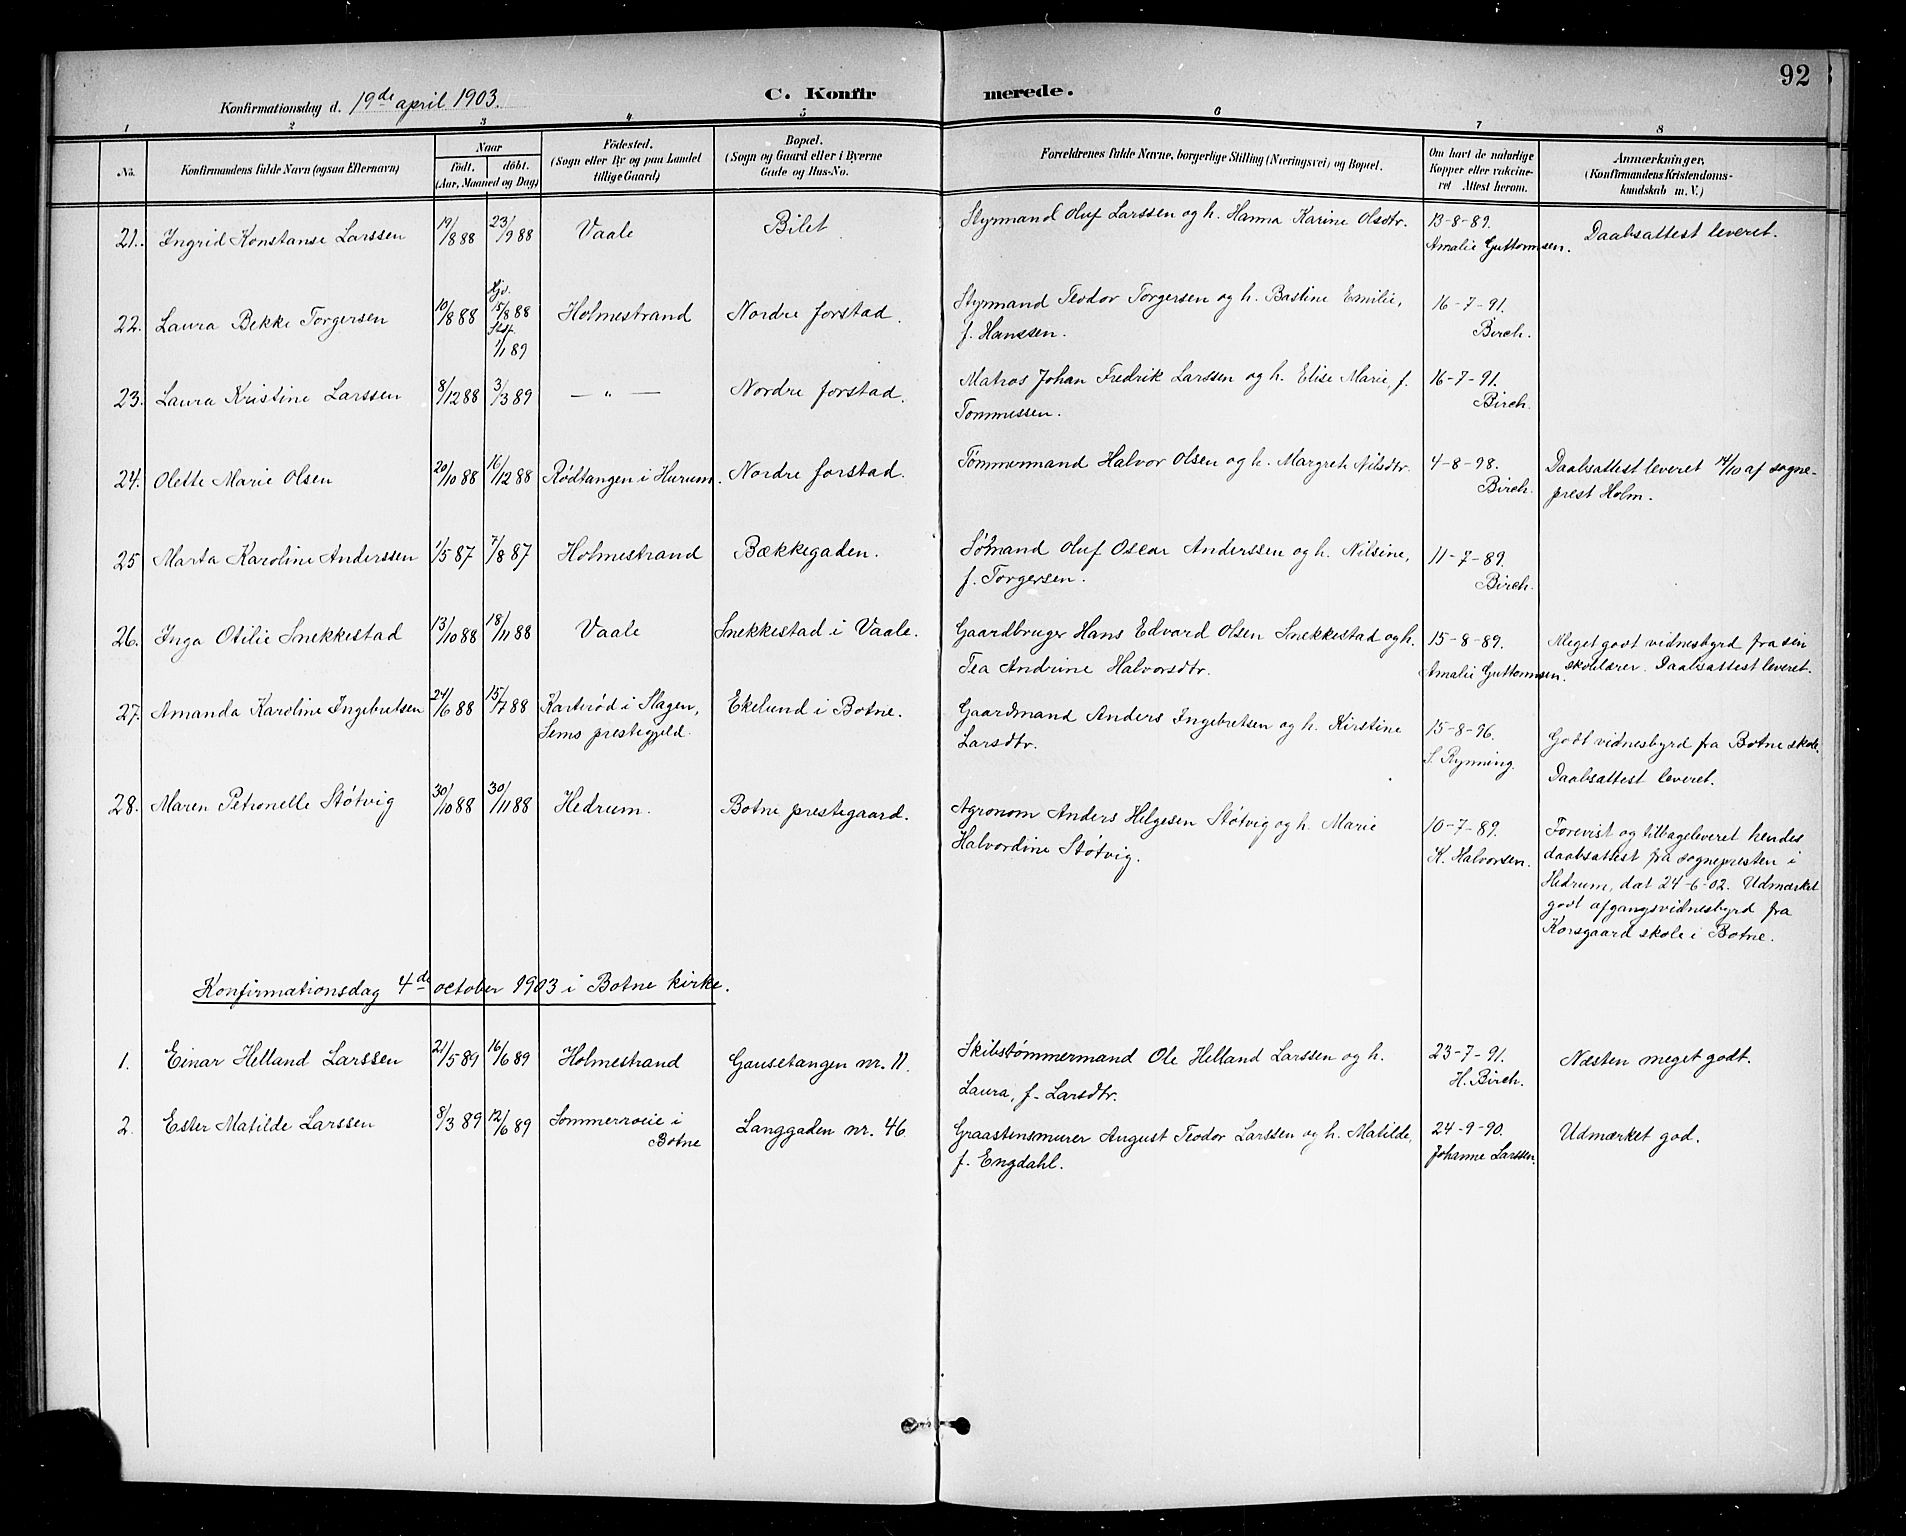 92
Konfirmationsdag d. 19de april 1903.
C. Konfirmerede.
1 2 3 4 5 6 7 8
No.
Konfirmandens fulde Navn (ogsaa Efternavn)
Naar
födt. döbt.
(Aar, Maaned og Dag)
Födested.
(Sogn eller By og paa Landet
tillige Gaard)
Bopæl.
(Sogn og Gaard eller i Byerne
Gade og Hus-No.
Forældrenes fulde Navne, borgerlige Stilling (Næringsvei) og Bopæl.
Om havt de naturlige
Kopper eller vakcine-
ret Attest herom.
Anmærkninger,
(Konfirmandens Kristendoms-
kundskab m. V.)
21. Ingrid Konstanse Larssen 19/8 88 23/9 88 Vaale Bilet Styrmand Oluf Larssen og h. Hanna Karine Olsdtr. 13-8-89. Daabsattest leveret.
Amalie Guttormsen.
22. Laura Bekke Torgersen 10/8 88 Hjd. 15/8 88 Holmestrand Nordre forstad. Styrmand Teodor Torgersen og h. Bastine Emilie, 16-7-91.
Stsf. 1/1 89 f. Hanssen. Birch.
23. Laura Kristine Larssen 8/12 88 3/3 89 — " — Nordre forstad. Matros Johan Fredrik Larssen og h. Elise Marie, f. 16-7-91.
Tommessen. Birch.
24. Olette Marie Olsen 20/10 88 16/12 88 Rødtangen i Hurum. Nordre forstad. Tømmermand Halvor Olsen og h. Margreth Nilsdtr. 4-8-98. Daabsattest leveret 14/10 af sogne-
Birch. prest Holm.
25 Marta Karoline Anderssen 1/5 87 7/8 87 Holmestrand Bækkegaden. Sømand Oluf Oscar Anderssen og h. Nilsine, 11-7-89.
f. Torgersen. Birch.
26. Inga Otilie Snekkestad 13/10 88 18/11 88 Vaale Snekkestad i Vaale. Gaardbruger Hans Edvard Olsen Snekkestad og h. 15-8-89. Meget godt vidnesbyrd fra sin
Tea Andrine Halvorsdtr. Amalie Guttormsen. skolelærer. Daabsattest leveret.
27. Amanda Karoline Ingebretsen 24/6 88 15/7 88 Karterød i Slagen, Ekelund i Botne. Gaardmand Anders Ingebretsen og h. Kirstine 15-8-96. Godt vidnesbyrd fra Botne skole.
Sems prestegjeld. Larsdtr. S. Rynning. Daabsattest leveret.
28. Maren Petronelle Støtvig 30/10 88 30/11 88 Hedrum. Botne prestegaard. Agronom Anders Helgesen Støtvig og h. Marie 10-7-89. Forevist og tilbageleveret hendes
Halvordine Støtvig. K. Halvorsen. daabsattest fra sognepresten i
Hedrum, dat 24-6-02. Udmærket
godt afgangsvidnesbyrd fra
Korsgaard skole i Botne.
Konfirmationsdag 4de october 1903 i Botne kirke.
1. Einar Helland Larssen 21/5 89 16/6 89 Holmestrand Gausetangen nr. 11. Skibstømmermand Ole Helland Larssen og h. 23-7-91. Næsten meget godt.
Laura, f. Larsdtr. H. Birch.
2. Ester Matilde Larssen 8/3 89 12/6 89 Sommerroeie i Langgaden nr. 46 Graastensmurer August Teodor Larssen og h. Matilde, 24-9-90. Udmærket god.
Botne f. Engdahl. Johanne Larssen.